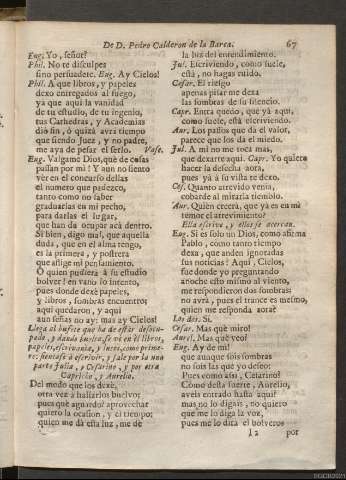 De D. Pedro Calderon de la Barca. 67
Eug. Yo, señor?
Phil. No te disculpes
sino persuadete. Eug. Ay Cielos!
Phil. A que libros, y papeles
dexo entregados al fuego,
ya que aqui la vanidad
de tu estudio, de tu ingenio,
tus Cathedras, y Academias
dio fin, ò quizà avrà tiempo
que siendo Juez, y no padre,
me aya de pesar el serlo. Vase.
Eug. Valgame Dios, què de cosas
passan por mi! Y aun no siento
ver en el concurso dellas
el numero que padezco,
tanto como no saber
graduarlas en mi pecho,
para darlas el lugar,
que han da ocupar acà dentro.
Si bien, digo mal, que aquella
duda, que en el alma tengo,
es la primera, y postrera
que aflige mi pensamiento.
O quien pudiera à su estudio
bolver! en vano lo intento,
pues donde dexè papeles,
y libros, sombras encuentro;
aqui quedaron, y aqui
aun señas no ay: mas ay Cielos!
Llega al bufete que ha de estar desocu-
pado, y dando buelta, se vè en èl libros,
papeles, escrivania, y luzes, como prime-
ro: sientase à escrivir, y sale por la una
parte Julia, y Cesarino, y por otra
Capricho, y Aurelio.
Del modo que los dexè,
otra vez à hallarlos buelvo;
pues què aguardo? aprovechar
quiero la ocasion, y el tiempo;
quien me dà esta luz, me dè
la luz del entendimiento.
Jul. Escriviendo, como suele,
està, no hagas ruido.
Cesar. El riesgo
apenas pisar me dexa
las sombras de su silencio.
Capr. Entra quedo, que yà aqui,
como suele, està escriviendo.
Aur. Los passos que dà el valor,
parece que los dà el miedo.
Jul. A mi no me toca mas,
que dexarte aqui. Capr. Yo quiero
hacer la desecha aora,
pues yà à su vista te dexo.
Ces. Quanto atrevido venia,
cobarde al mirarla tiemblo.
Aur. Quien creerà, que yà es en mi
temor el atrevimiento?
Ella escrive, y ellos se acercan.
Eug. Si es solo un Dios, como afirma
Pablo, como tanto tiempo
dexa, que anden ignoradas
sus noticias? Aqui, Cielos,
fue donde yo preguntando
anoche esto mismo al viento,
me respondieron dos sombras:
no avrà, pues el trance es mesmo,
quien me responda aora?
Los dos. Si.
Cesar. Mas què miro?
Aurel. Mas què veo?
Eug. Ay de mi!
que aunque sois sombras
no sois las que yo deseo:
Pues como assi, Cesarino!
Como desta suerte, Aurelio,
aveis entrado hasta aqui?
mas no lo digais, no quiero
que me lo diga la voz,
pues me lo dirà el bolveros
I 2 por